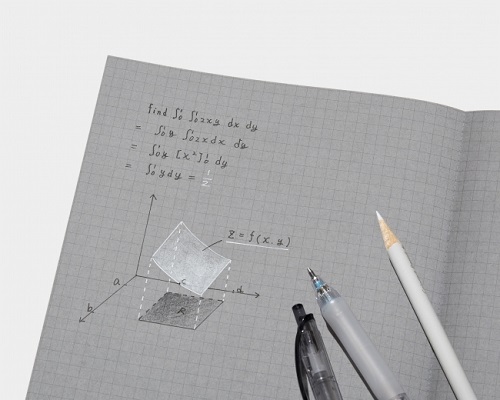 find ∫₀¹ ∫₀¹ 2xy dx dy
= ∫₀¹ y ∫₀¹ 2x dx dy
= ∫₀¹ y [x²]₀¹ dy
= ∫₀¹ y dy = 1/2
z = f(x, y)
a c d
b R